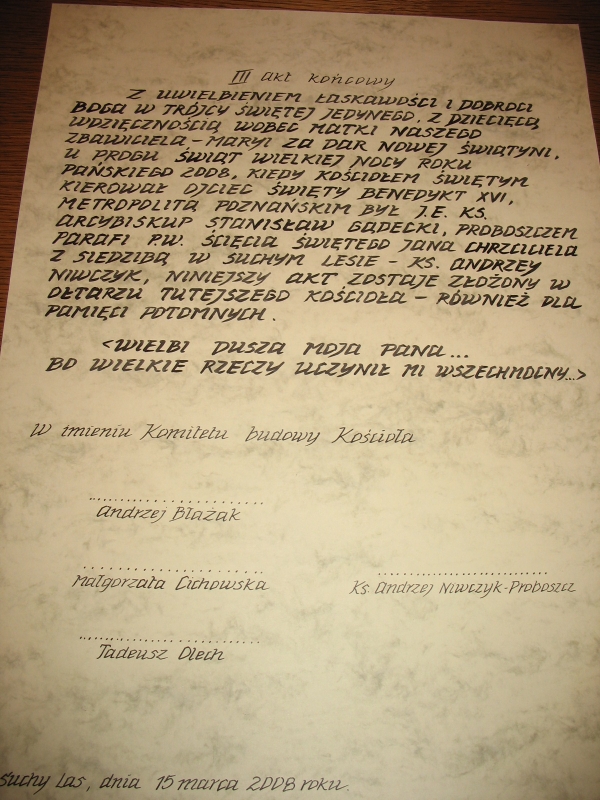 III akt końcowy
Z UWIELBIENIEM ŁASKAWOŚCI I DOBROCI
BOGA W TRÓJCY ŚWIĘTEJ JEDYNEGO, Z DZIECIĘCĄ
WDZIĘCZNOŚCIĄ WOBEC MATKI NASZEGO
ZBAWICIELA – MARYI ZA DAR NOWEJ ŚWIĄTYNI,
U PROGU ŚWIĄT WIELKIEJ NOCY ROKU
PAŃSKIEGO 2008, KIEDY KOŚCIOŁEM ŚWIĘTYM
KIEROWAŁ OJCIEC ŚWIĘTY BENEDYKT XVI,
METROPOLITĄ POZNAŃSKIM BYŁ J.E. KS.
ARCYBISKUP STANISŁAW GĄDECKI, PROBOSZCZEM
PARAFI P.W. ŚCIĘCIA ŚWIĘTEGO JANA CHRZCICIELA
Z SIEDZIBĄ W SUCHYM LESIE – KS. ANDRZEJ
NIWCZYK, NINIEJSZY AKT ZOSTAJE ZŁOŻONY W
OŁTARZU TUTEJSZEGO KOŚCIOŁA – RÓWNIEŻ DLA
PAMIĘCI POTOMNYCH.
<WIELBI DUSZA MOJA PANA...
BO WIELKIE RZECZY UCZYNIŁ MI WSZECHMOCNY...>
W imieniu Komitetu budowy Kościoła
Andrzej Błażak
Małgorzata Cichowska
Ks. Andrzej Niwczyk-Proboszcz
Tadeusz Olech
Suchy Las, dnia 15 marca 2008 roku.